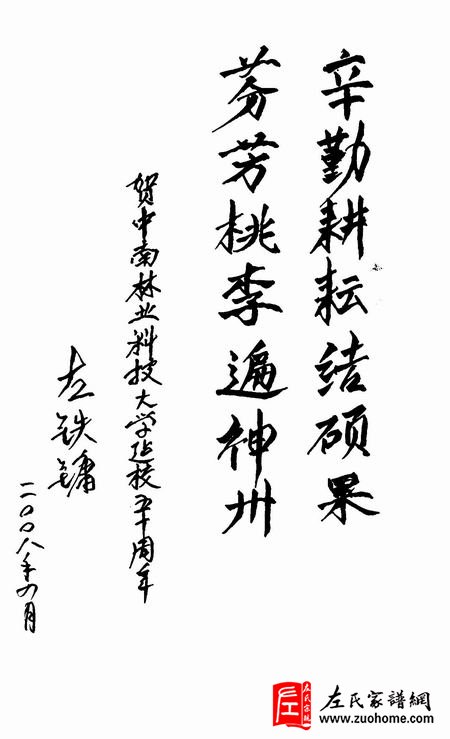 辛勤耕耘结硕果
芬芳桃李遍神州
贺中南林业科技大学建校五十周年
左铁镛
二〇〇八年四月
左氏家譜網
www.zuohome.com